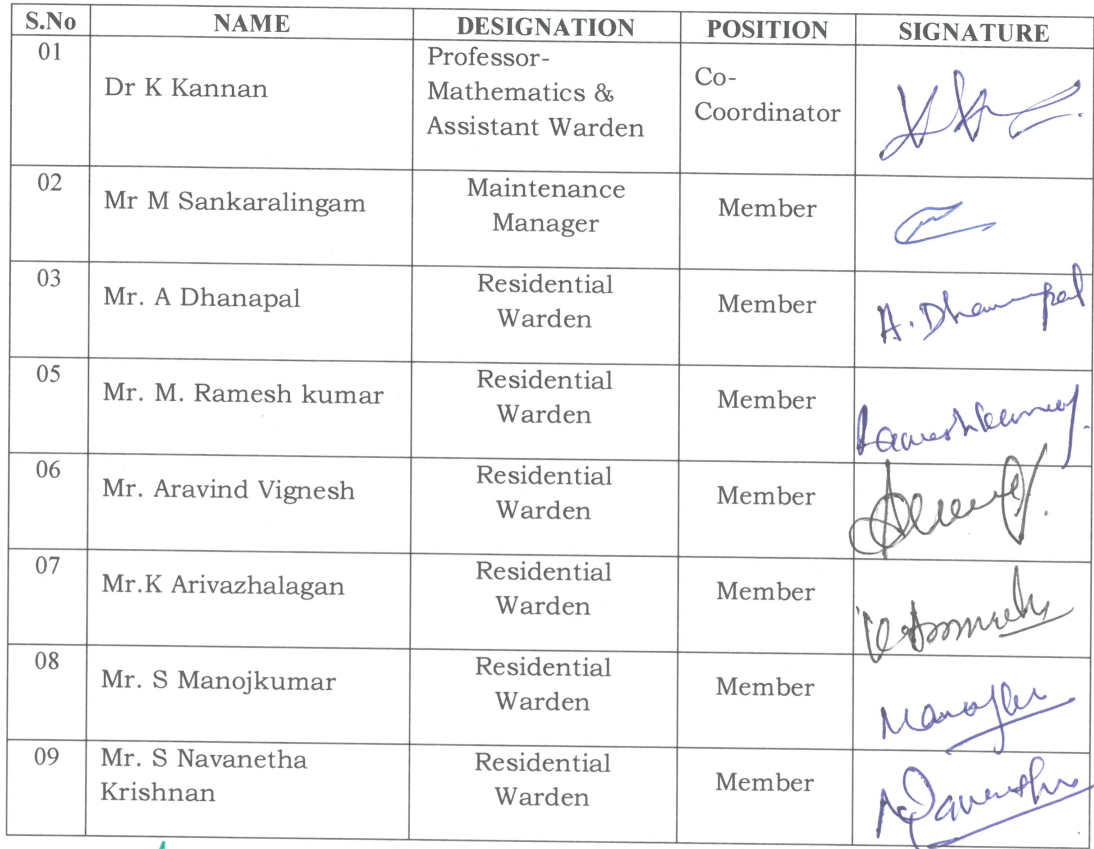 S.No NAME DESIGNATION POSITION SIGNATURE
01 Dr K Kannan Professor- Mathematics & Assistant Warden Co- Coordinator
02 Mr M Sankaralingam Maintenance Manager Member
03 Mr. A Dhanapal Residential Warden Member A. Dhanapal
05 Mr. M. Ramesh kumar Residential Warden Member
06 Mr. Aravind Vignesh Residential Warden Member
07 Mr.K Arivazhalagan Residential Warden Member
08 Mr. S Manojkumar Residential Warden Member
09 Mr. S Navanetha Krishnan Residential Warden Member